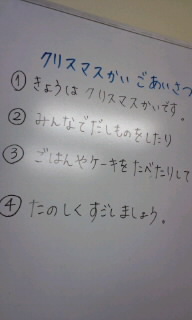 クリスマスかい ごあいさつ
① きょうは クリスマスかいです。
② みんなでだしものをしたり
③ ごはんやケーキを たべたりして
④ たのしく すごしましょう。